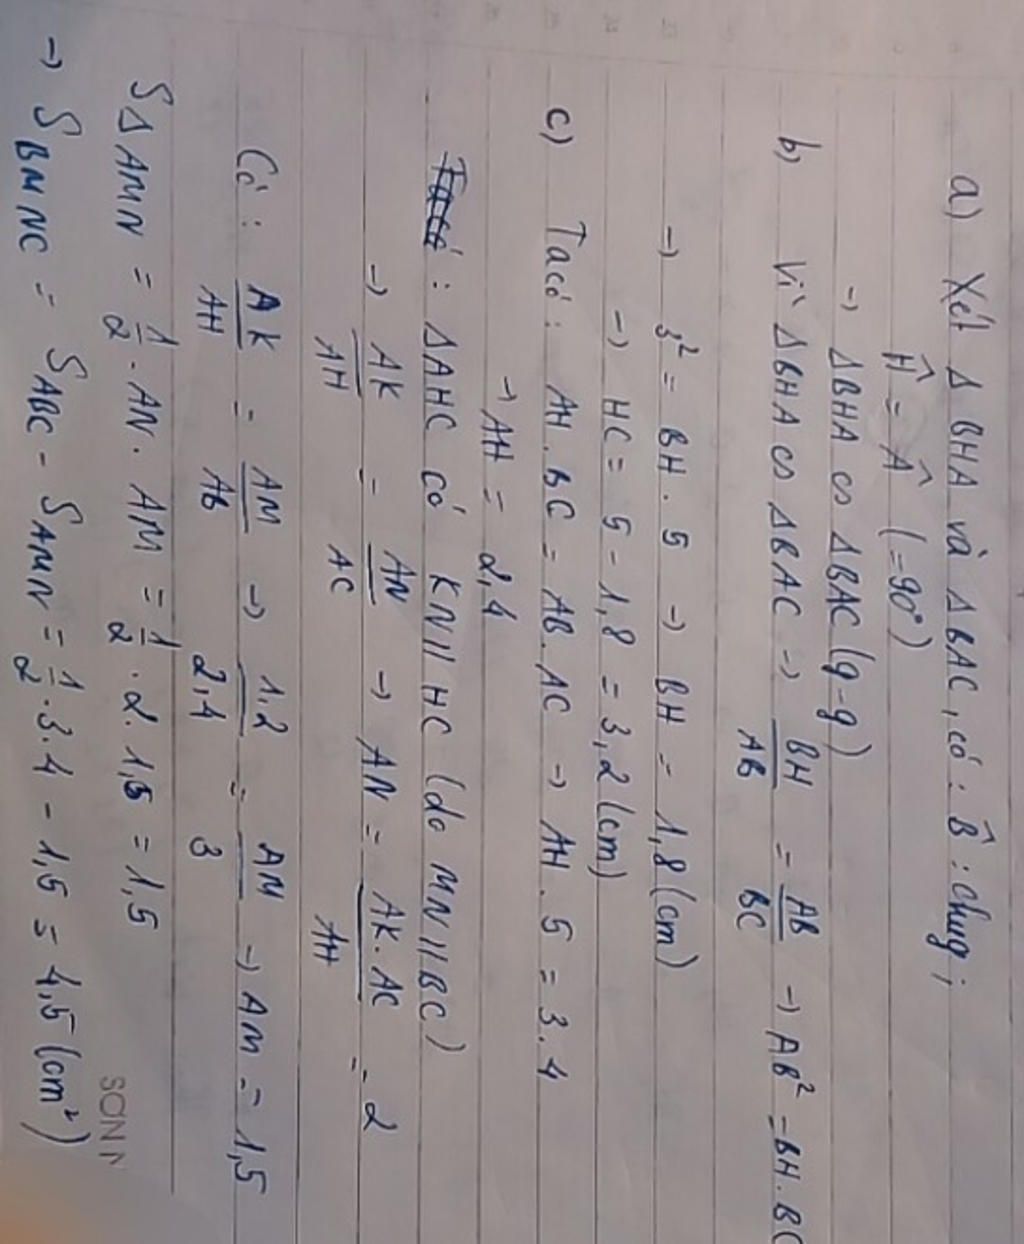 a) Xét Δ BHA và Δ BAC, có: B̂ : chug;
Ĥ = Â (=90°)
→ ΔBHA ∽ ΔBAC (g-g)
b) Vì ΔBHA ∽ ΔBAC → BH/AB = AB/BC → AB² = BH.BC
→ 3² = BH.5 → BH = 1,8 (cm)
→ HC = 5 - 1,8 = 3,2 (cm)
c) Ta có: AH.BC = AB.AC → AH.5 = 3.4
→ AH = 2,4
: ΔAHC có KN // HC (do MN // BC)
→ AK/AH = AN/AC → AN = AK.AC/AH = 2
Có: AK/AH = AM/AB → 1,2/2,4 = AM/3 → AM = 1,5
SΔAMN = 1/2 . AN. AM = 1/2 . 2. 1,5 = 1,5
→ S BMNC = S ABC - S AMN = 1/2 .3.4 - 1,5 = 4,5 (cm²)